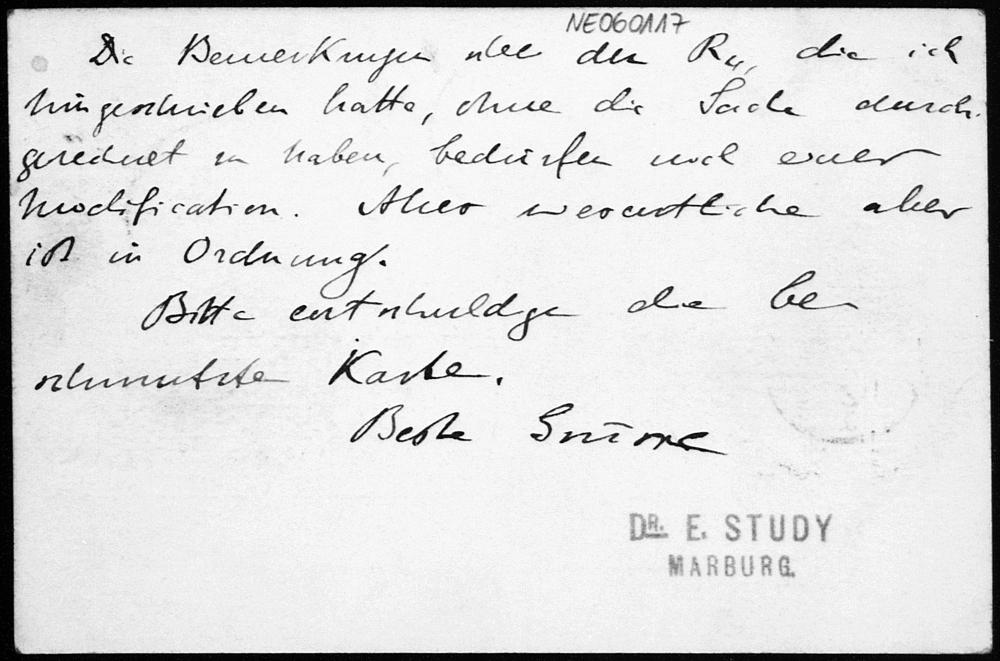 NE060117
Die Bemerkungen über den R₄, die ich
hingeschrieben hatte, ohne die Sache durch-
gerechnet zu haben, bedürfen noch einer
Modification. Alles wesentliche aber
ist in Ordnung.
Bitte entschuldige die be
schmutzte Karte.
Beste Grüsse
DR. E. STUDY
MARBURG.